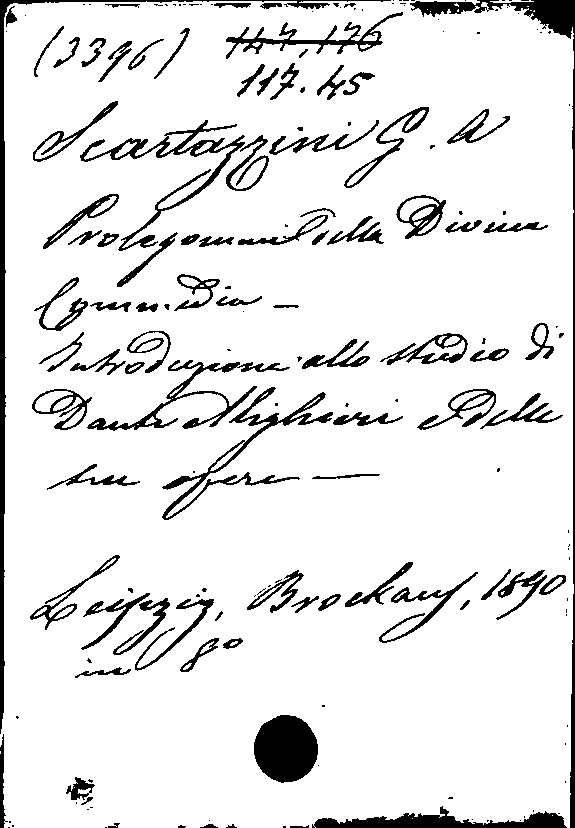 (3396) 147,176
117.45
Scartazzini G. A
Prolegomeni della Divina
Commedia —
Introduzione allo studio di
Dante Allighieri e delle
sue opere —
Leipzig, Brockaus, 1890
in 8°